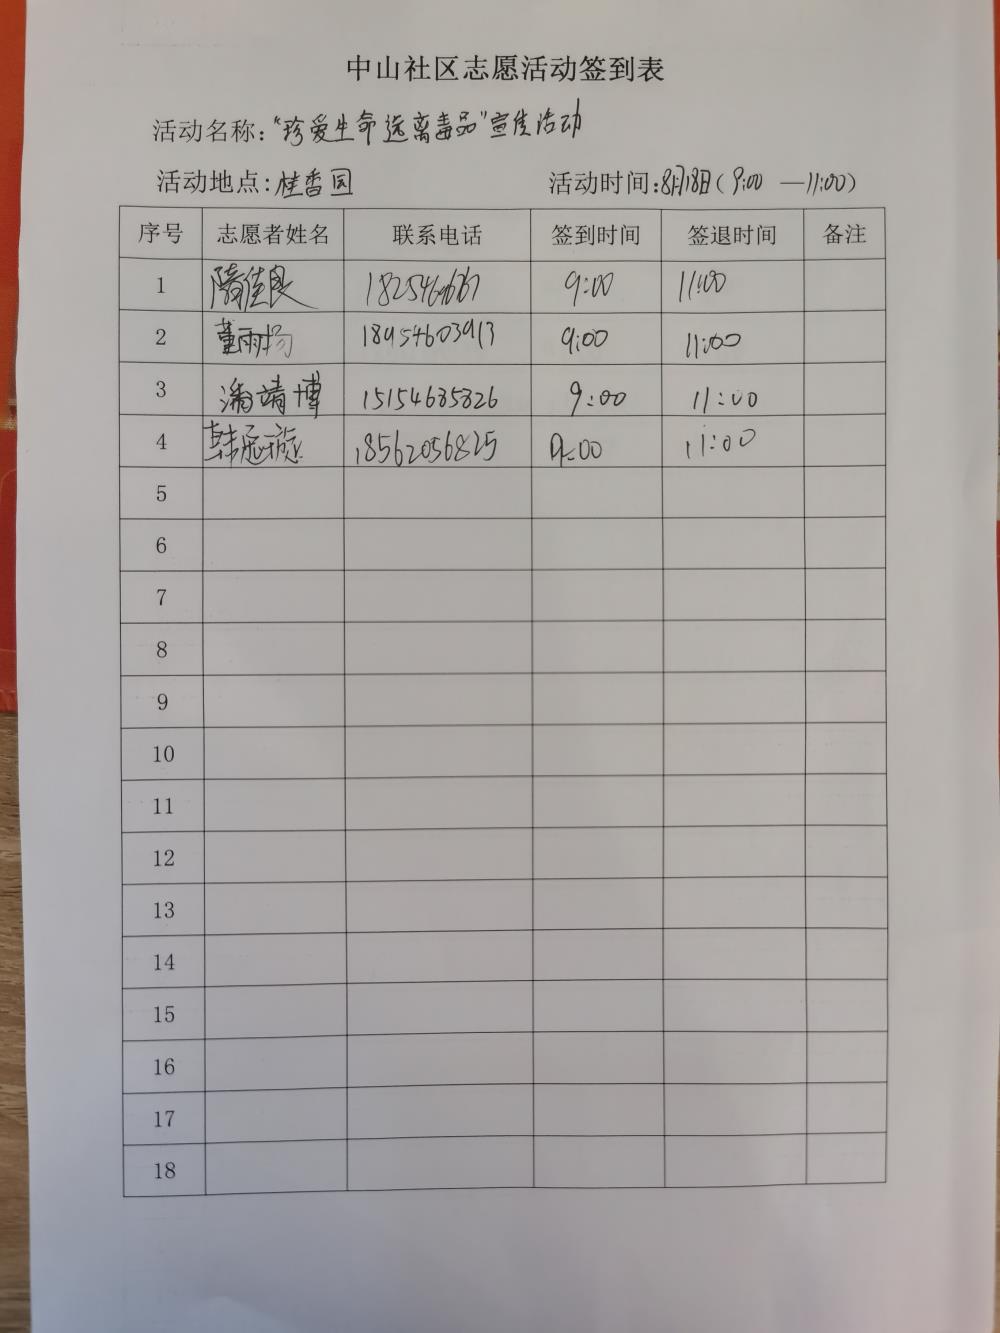 中山社区志愿活动签到表
活动名称:“珍爱生命远离毒品”宣传活动
活动地点:桂香园 活动时间:8月18日(9:00 —11:00)
序号 志愿者姓名 联系电话 签到时间 签退时间 备注
1 隋佳良 9:00 11:00
2 董雨杨 18954603913 9:00 11:00
3 潘靖博 15154685826 9:00 11:00
4 韩 18562056825 9:00 11:00
5
6
7
8
9
10
11
12
13
14
15
16
17
18